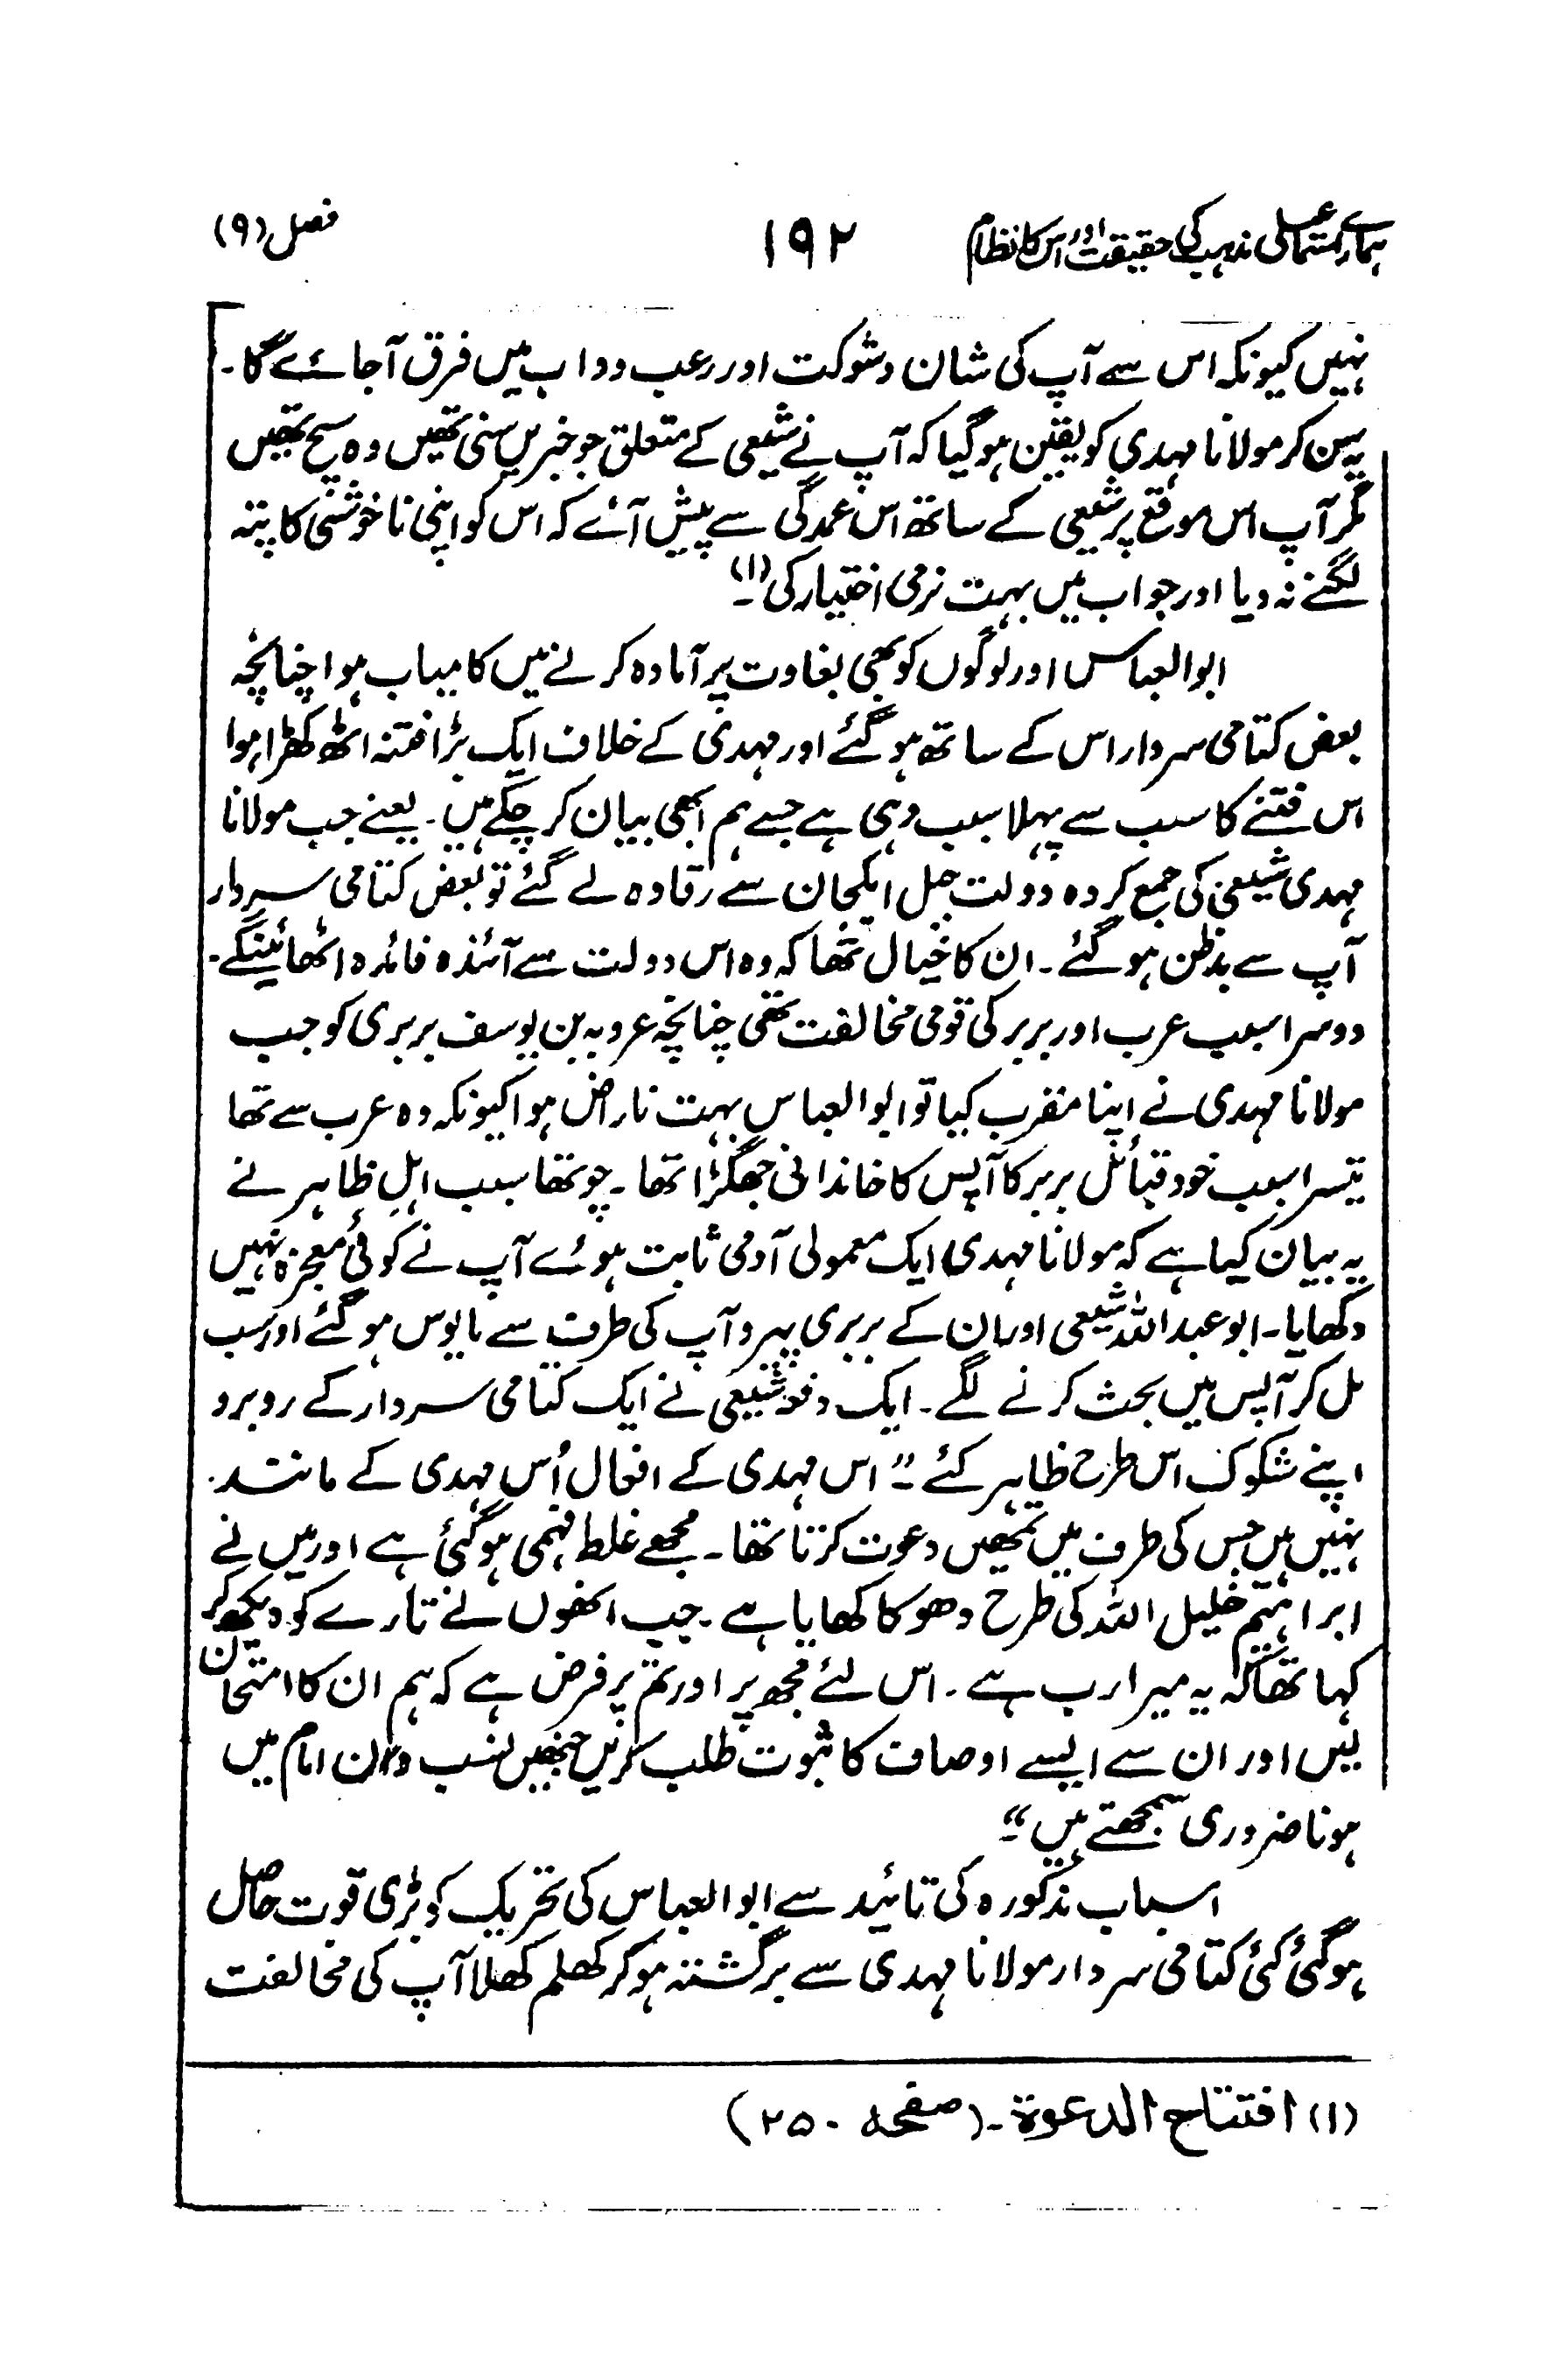 ہمارے اسماعیلی مذہب کی حقیقت اور اس کا نظام ۱۹۲ فصل (۹)
نہیں کیونکہ اس سے آپ کی شان و شوکت اور رعب و داب میں فرق آجائے گا۔
یہ سن کر مولانا مہدی کو یقین ہوگیا کہ آپ نے شیعی کے متعلق جو خبریں سنی تھیں وہ سچ تھیں
مگر آپ اس موقع پر شیعی کے ساتھ اس عمدگی سے پیش آئے کہ اس کو اپنی ناخوشی کا پتہ
لگنے نہ دیا اور جواب میں بہت نرمی اختیار کی (۱)۔
ابوالعباس اور لوگوں کو بھی بغاوت پر آمادہ کرنے میں کامیاب ہوا چنانچہ
بعض کتامی سردار اس کے ساتھ ہوگئے اور مہدی کے خلاف ایک بڑا فتنہ اٹھ کھڑا ہوا
اس فتنے کا سب سے پہلا سبب وہی ہے جسے ہم ابھی بیان کرچکے ہیں۔ یعنے جب مولانا
مہدی شیعی کی جمع کردہ دولت جبل ایکجان سے رقادہ لے گئے تو بعض کتامی سردار
آپ سے بدظن ہوگئے۔ ان کا خیال تھا کہ وہ اس دولت سے آئندہ فائدہ اٹھائینگے۔
دوسرا سبب عرب اور بربر کی قومی مخالفت تھی چنانچہ عروبہ بن یوسف بربری کو جب
مولانا مہدی نے اپنا مقرب کیا تو ابوالعباس بہت ناراض ہوا کیونکہ وہ عرب سے تھا
تیسرا سبب خود قبائل بربر کا آپس کا خاندانی جھگڑا تھا۔ چوتھا سبب اہلِ ظاہر نے
یہ بیان کیا ہے کہ مولانا مہدی ایک معمولی آدمی ثابت ہوئے آپ نے کوئی معجزہ نہیں
دکھایا۔ ابو عبداللہ شیعی اور ان کے بربری پیرو آپ کی طرف سے مایوس ہوگئے اور سب
مل کر آپس میں بحث کرنے لگے۔ ایک دفعہ شیعی نے ایک کتامی سردار کے روبرو
اپنے شکوک اس طرح ظاہر کئے :۔ ”اس مہدی کے افعال اُس مہدی کے مانند
نہیں ہیں جس کی طرف میں تمھیں دعوت کرتا تھا۔ مجھے غلط فہمی ہوگئی ہے اور میں نے
ابراہیم خلیل اللہ کی طرح دھوکا کھایا ہے۔ جب انھوں نے تارے کو دیکھ کر
کہا تھا کہ یہ میرا رب ہے۔ اس لئے مجھ پر اور تم پر فرض ہے کہ ہم ان کا امتحان
لیں اور ان سے ایسے اوصاف کا ثبوت طلب کریں جنھیں نسب دان امام میں
ہونا ضروری سمجھتے ہیں“۔
اسباب مذکورہ کی تائید سے ابوالعباس کی تحریک کو بڑی قوت حاصل
ہوگئی کئی کتامی سردار مولانا مہدی سے برگشتہ ہوکر کھلم کھلا آپ کی مخالفت
(۱) افتتاح الدعوة۔ (صفحہ ۲۵۰)